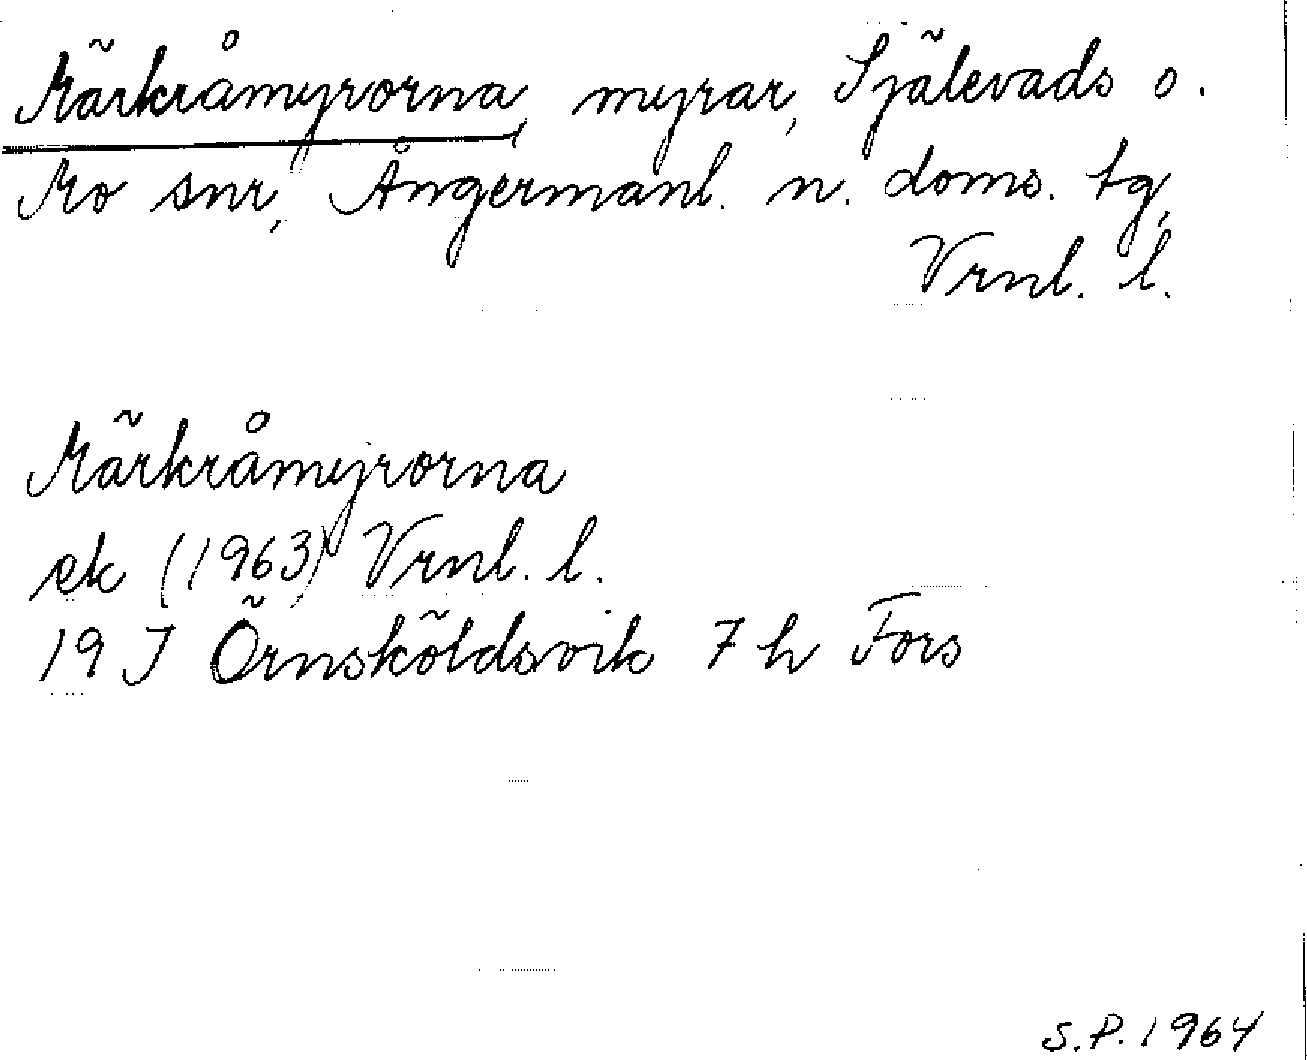 Märkråmyrorna, myrar, Själevads o.
Mo snr, Ångermanl. n. doms. tg,
Vrnl. l.
Märkråmyrorna
ek (1963) Vrnl. l.
19 J Örnsköldsvik 7 h Fors
S.P. 1964